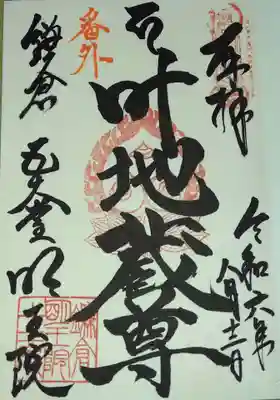 奉拝
令和六年
八月十二日
叶地蔵尊
番外
鎌倉 五大堂 明王院